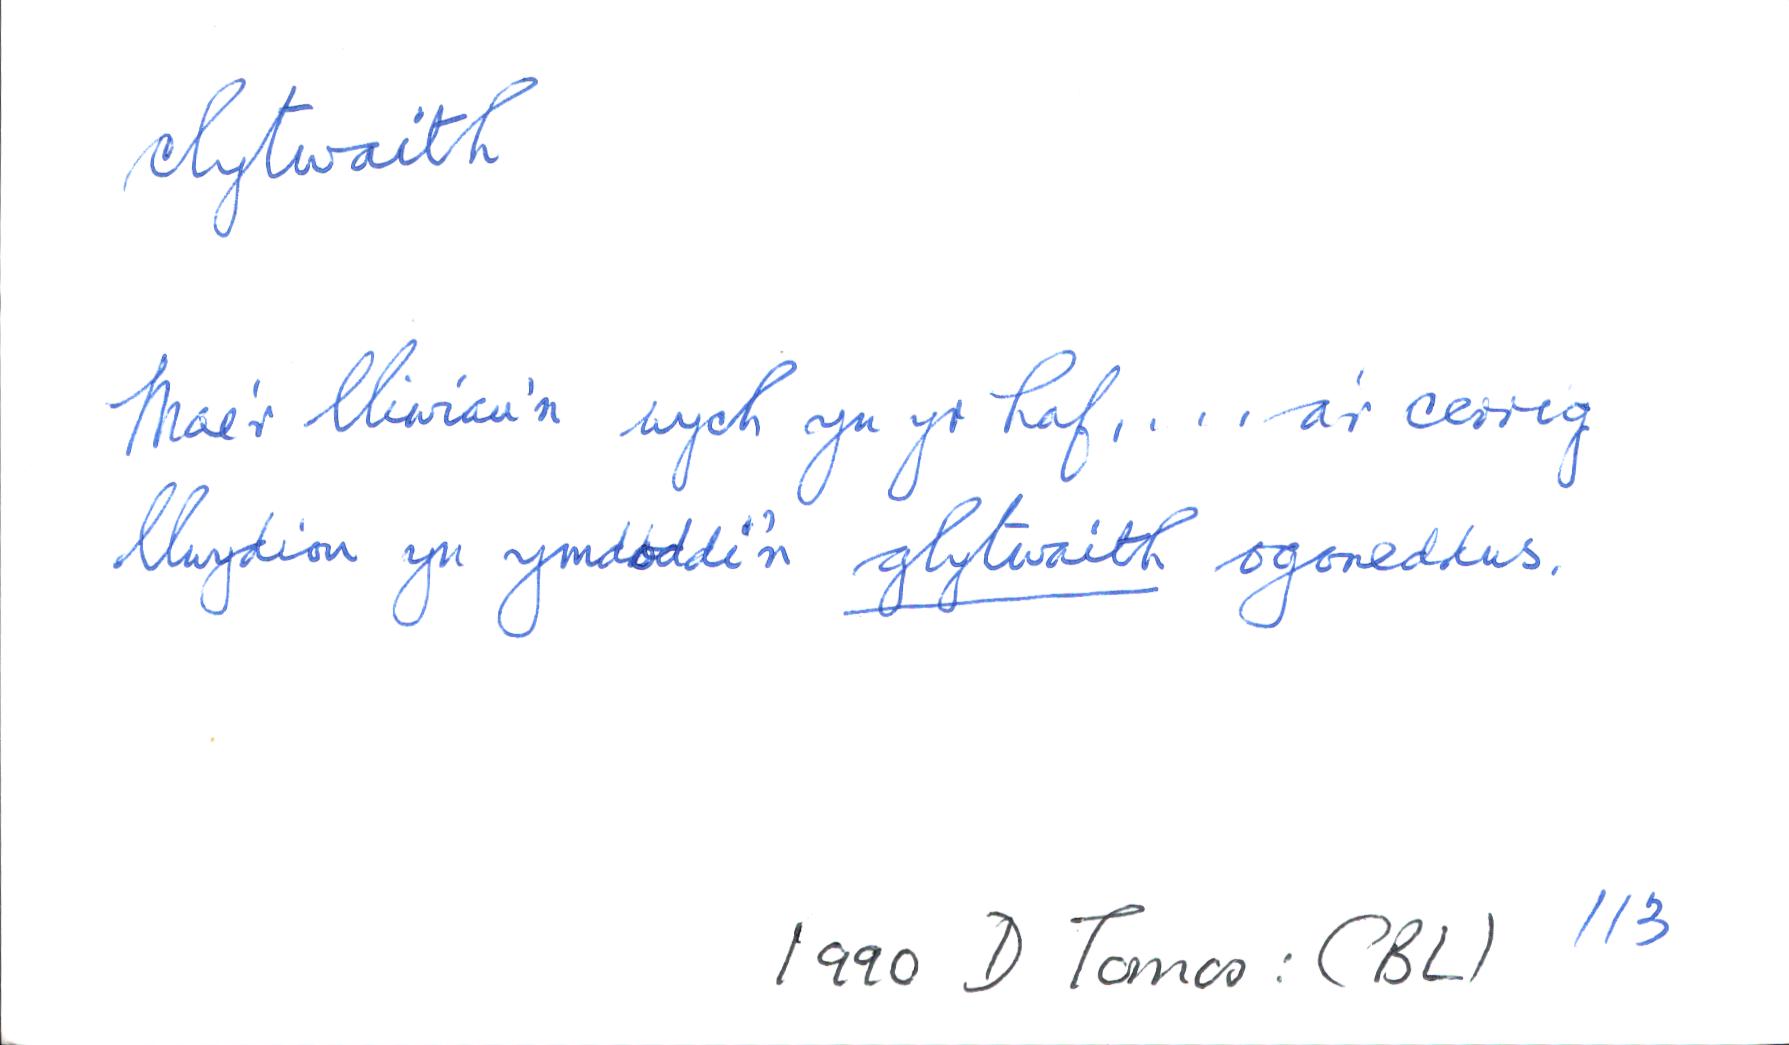 clytwaith
Mae'r lliwiau'n wych yn yr haf, .... a'r cerrig
llwydion yn ymdoddi'n glytwaith ogoneddus.
1990 D Tomos: (BL) 113